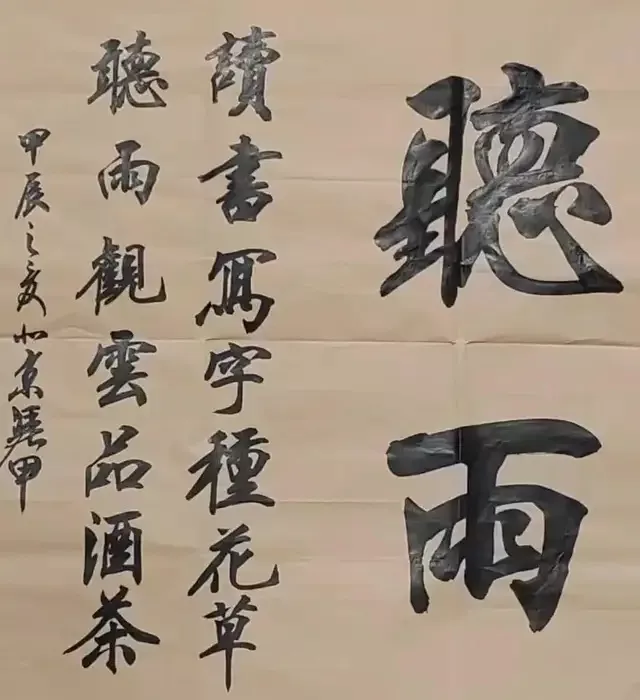 聽雨
讀書寫字種花草
聽雨觀雲品酒茶
甲辰之夏小京
甲